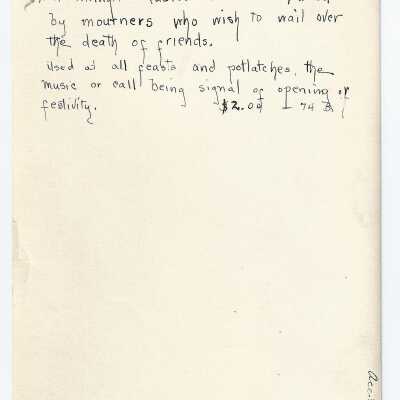 by mourners who wish to wail over
the death of friends.
Used at all feasts and potlatches, the
music or call being signal of opening of
festivity. $2.00 I 74 B
Acc.